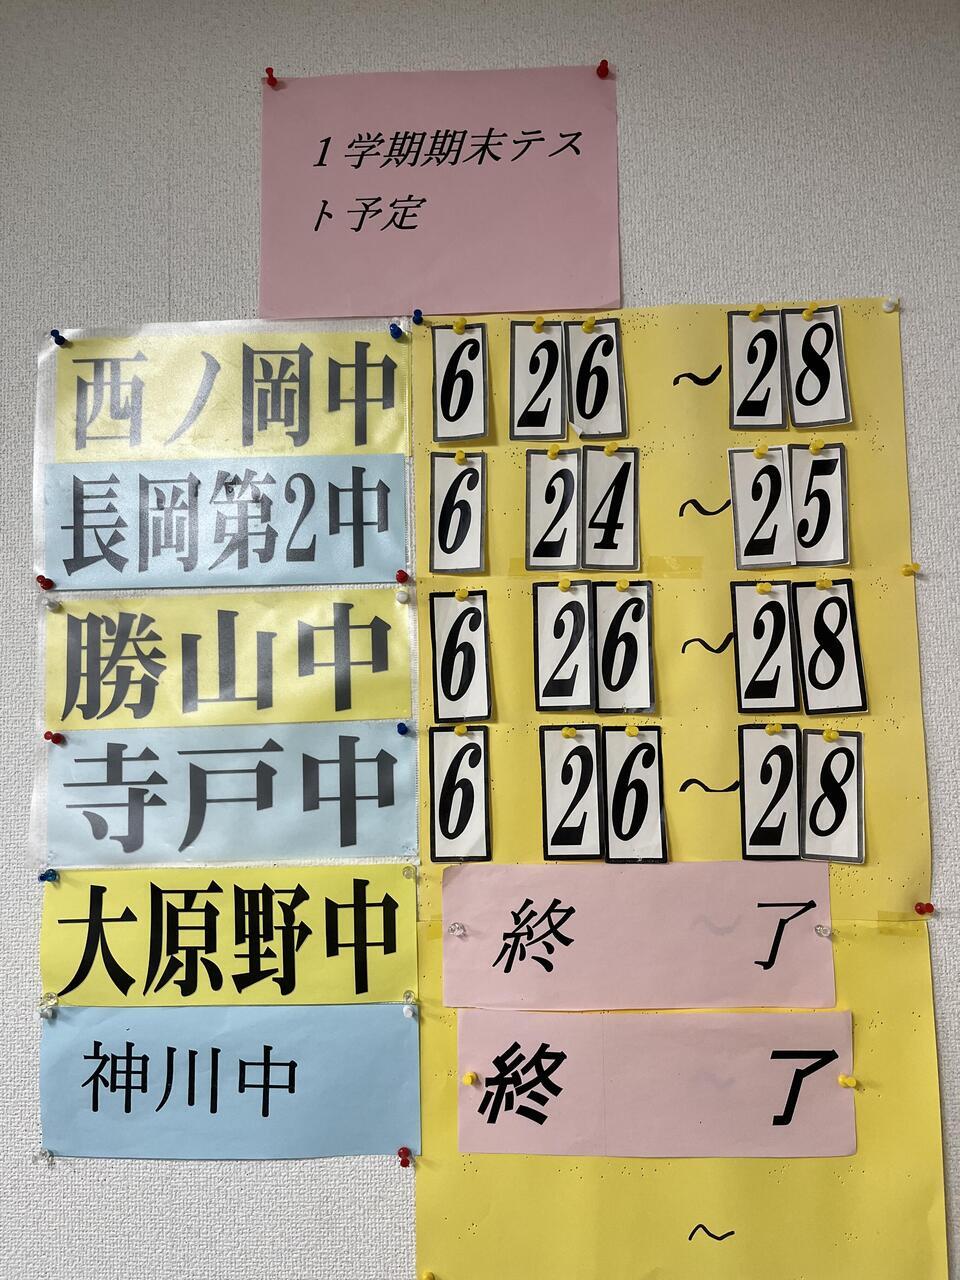 1学期期末テス
ト予定
西ノ岡中 6 26 ~ 28
長岡第2中 6 24 ~ 25
勝山中 6 26 ~ 28
寺戸中 6 26 ~ 28
大原野中 終 了
神川中 終 了
~